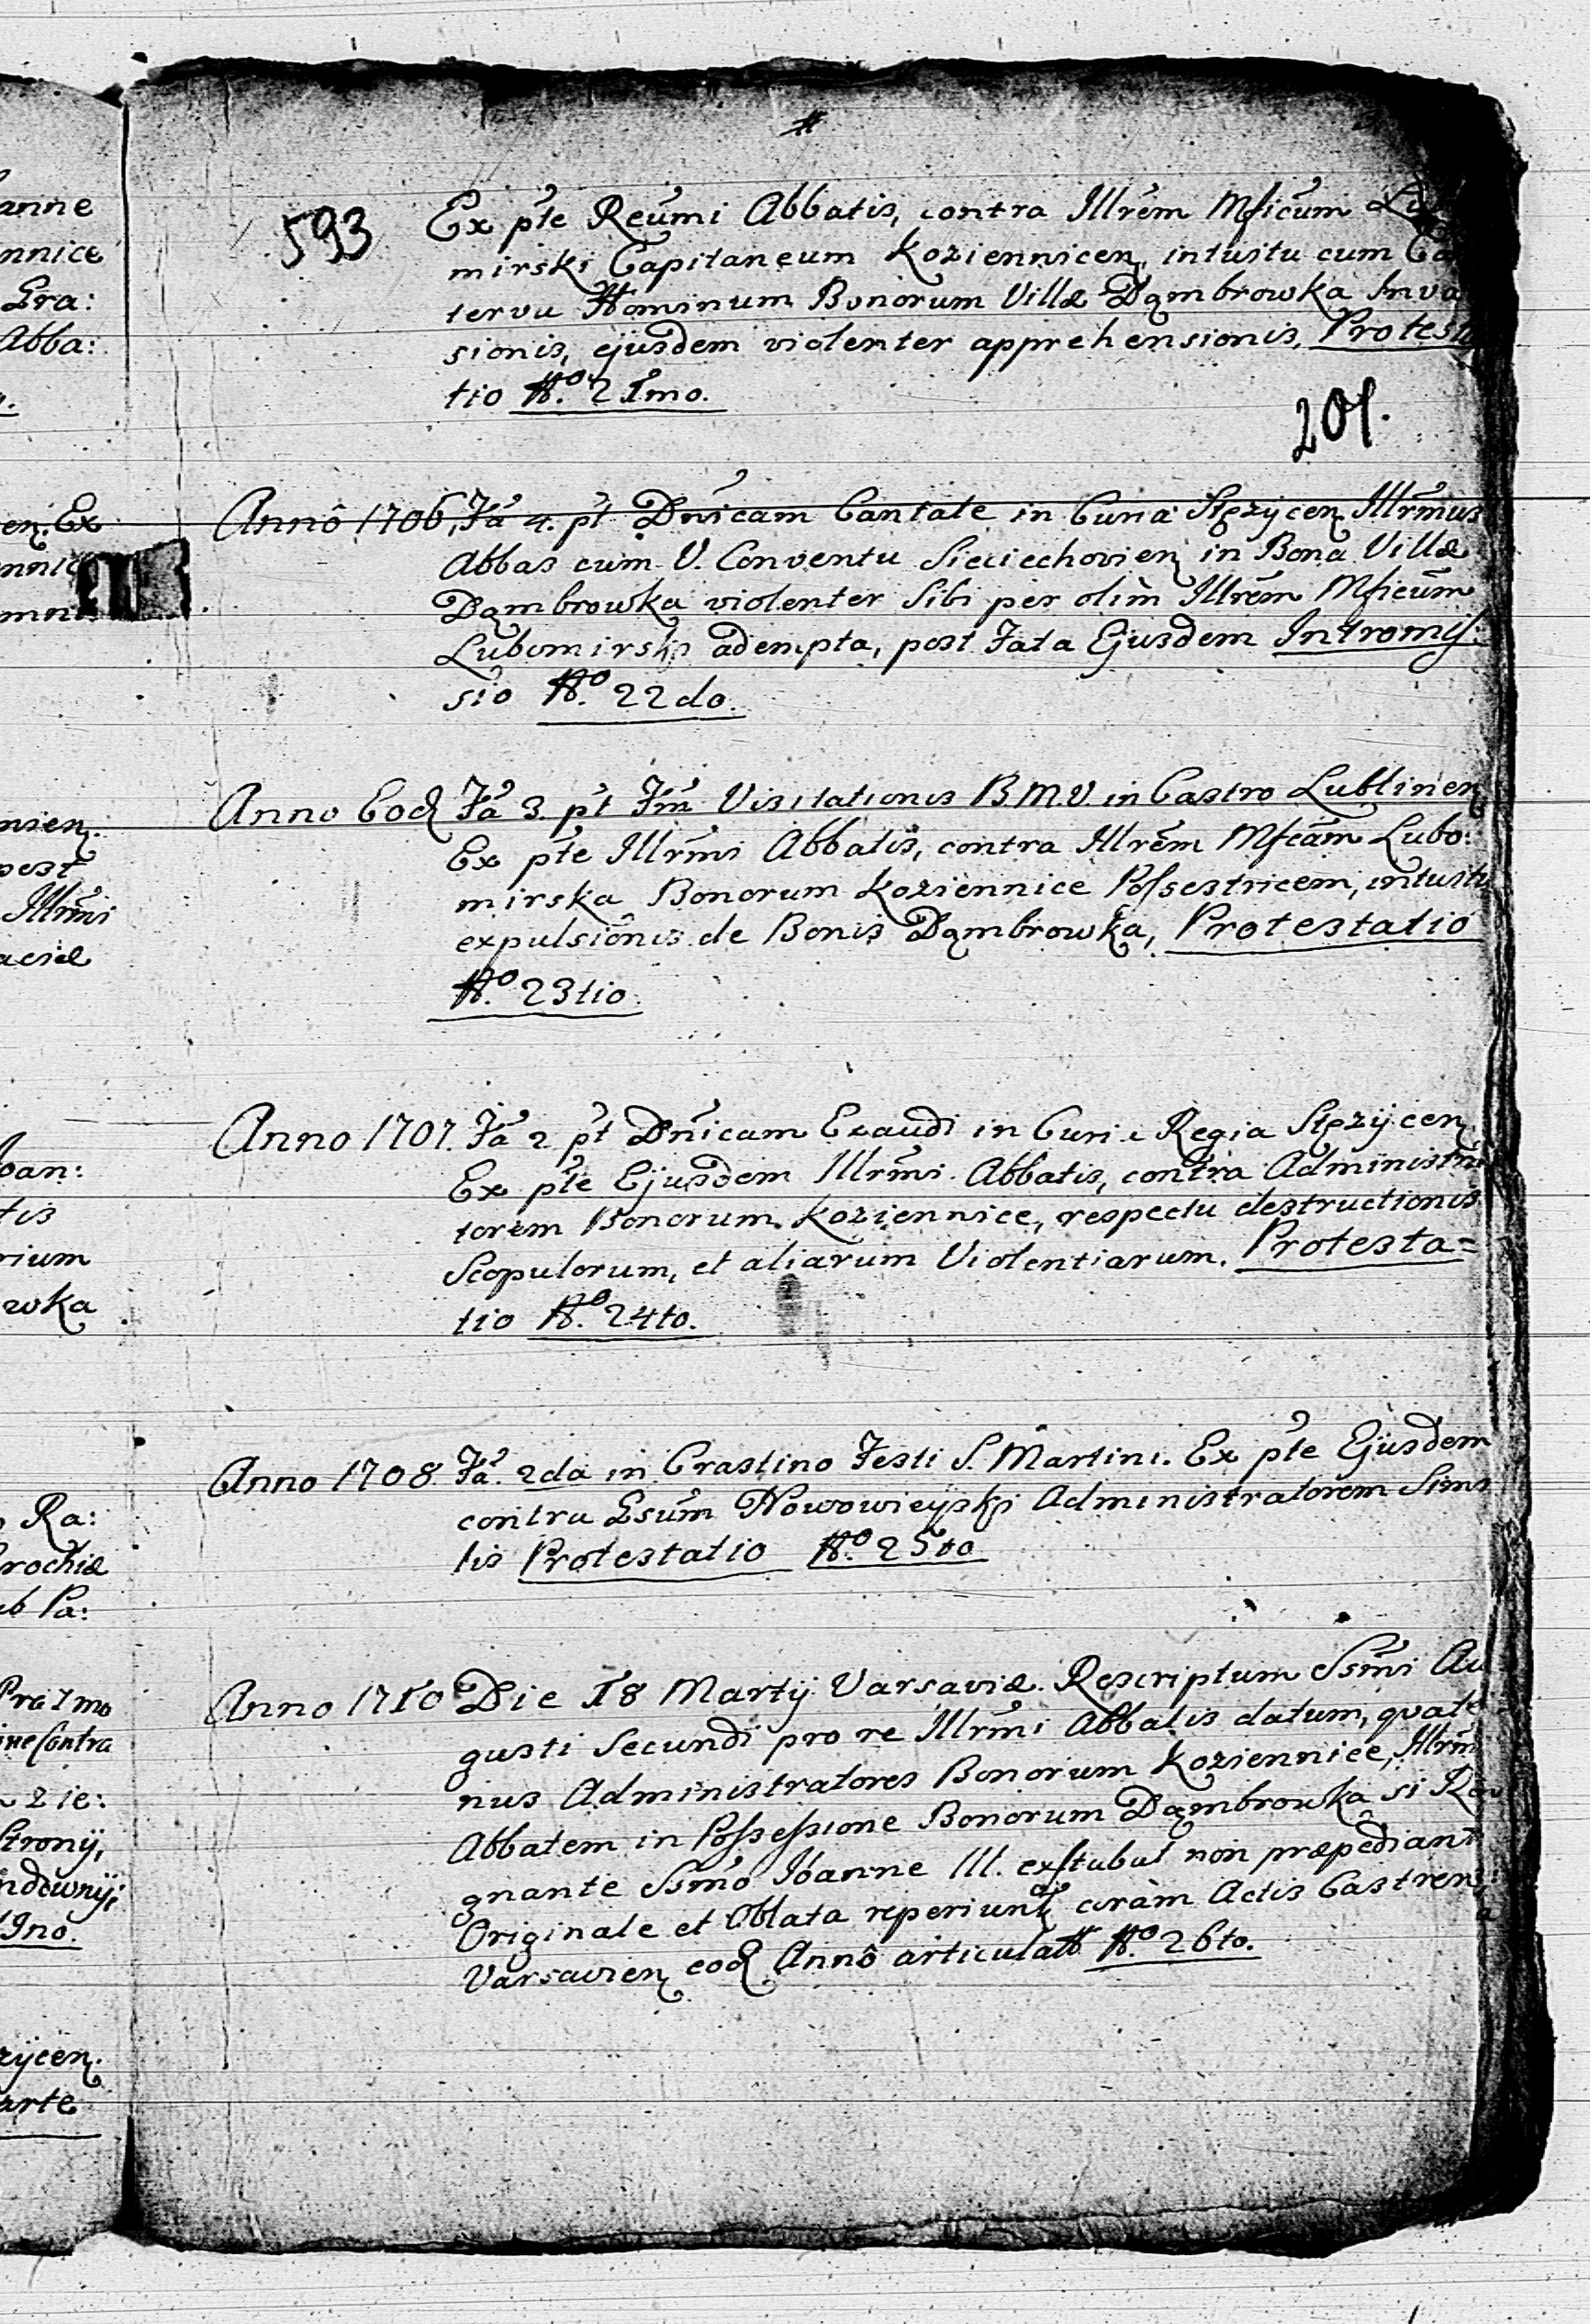 593
Ex pte Reumi Abbatis, contra Illrem Mficum
mirski Capitaneum Koziennicen, intuitu cum Ca
terva Hominum Bonorum Villæ Dąmbrowka Inva
sionis, ejusdem violenter apprehensionis, Protesta
tio No. 21mo.
201.
Annô 1706, Fa 4. pt Dnicam Cantate in Curia Stężycen Illrmus
Abbas cum V. Conventu Sieciechovien in Bona Villæ
Dąmbrowka violenter Sibi per olim Illrem Mficum
Lubomirski adempta, post Fata Ejusdem Intromis:
sio No. 22do.
Anno Eod Fa 3. pt Fm Visitationis B.M.V. in Castro Lublinen
Ex pte Illrmi Abbatis, contra Illrem Mficam Lubo:
mirska Bonorum Koziennice Possestricem, intuitu
expulsiônis de Bonis Dąmbrowka, Protestatio
No. 23tio.
Anno 1707. Fa 2 pt Dnicam Exaudi in Curia Regia Stężycen
Ex pte Ejusdem Illrmi Abbatis, contra Administra
torem Bonorum Koziennice, respectu destructionis
Scopulorum, et aliarum Violentiarum. Protesta=
tio No. 24to.
Anno 1708. Fa. 2da in Crastino Festi S. Martini. Ex pte Ejusdem
contra Gsum Nowowieyski Administratorem Simi
lis Protestatio No. 25to
Anno 1710 Die 18 Martij Varsaviæ. Rescriptum Ssmi Au
gusti Secundi pro re Illrmi Abbatis datum, quate
nus Administratores Bonorum Koziennice, Illrm
Abbatem in Possessione Bonorum Dąmbrowka si Re
gnante Ssmo Ioanne III. exstabat non præpediant
Originale et Oblata reperiunt coràm Actis Castren:
Varsavien eod Annô articulata No. 26to.